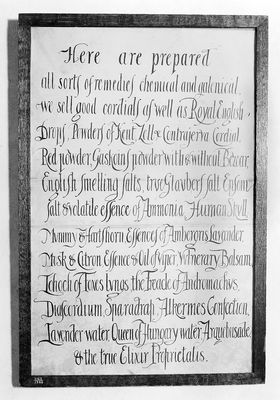 Here are prepared
all sorts of remedies chemical and galenical,
we sell good cordials as well as Royal English
Drops, Powders of Kent Zell & Contrajerva Cordial,
Red powder, Gaskoins powder with & without Bezoar,
English smelling salts, true Glaubers salt Epsom
salt & volatile essence of Ammonia, Human Skull
Mummy & Hartshorn Essences of Ambergris Lavander
Musk & Citron Essence & Oil of Viper Vulnerary Balsum,
Lehoch of Foxes lungs the Treacle of Andromachus,
Diascordium Sparadrap, Alkermes Confection,
Lavender water Queen of Hungary water Arquebusade,
& the true Elixir Proprietatis.